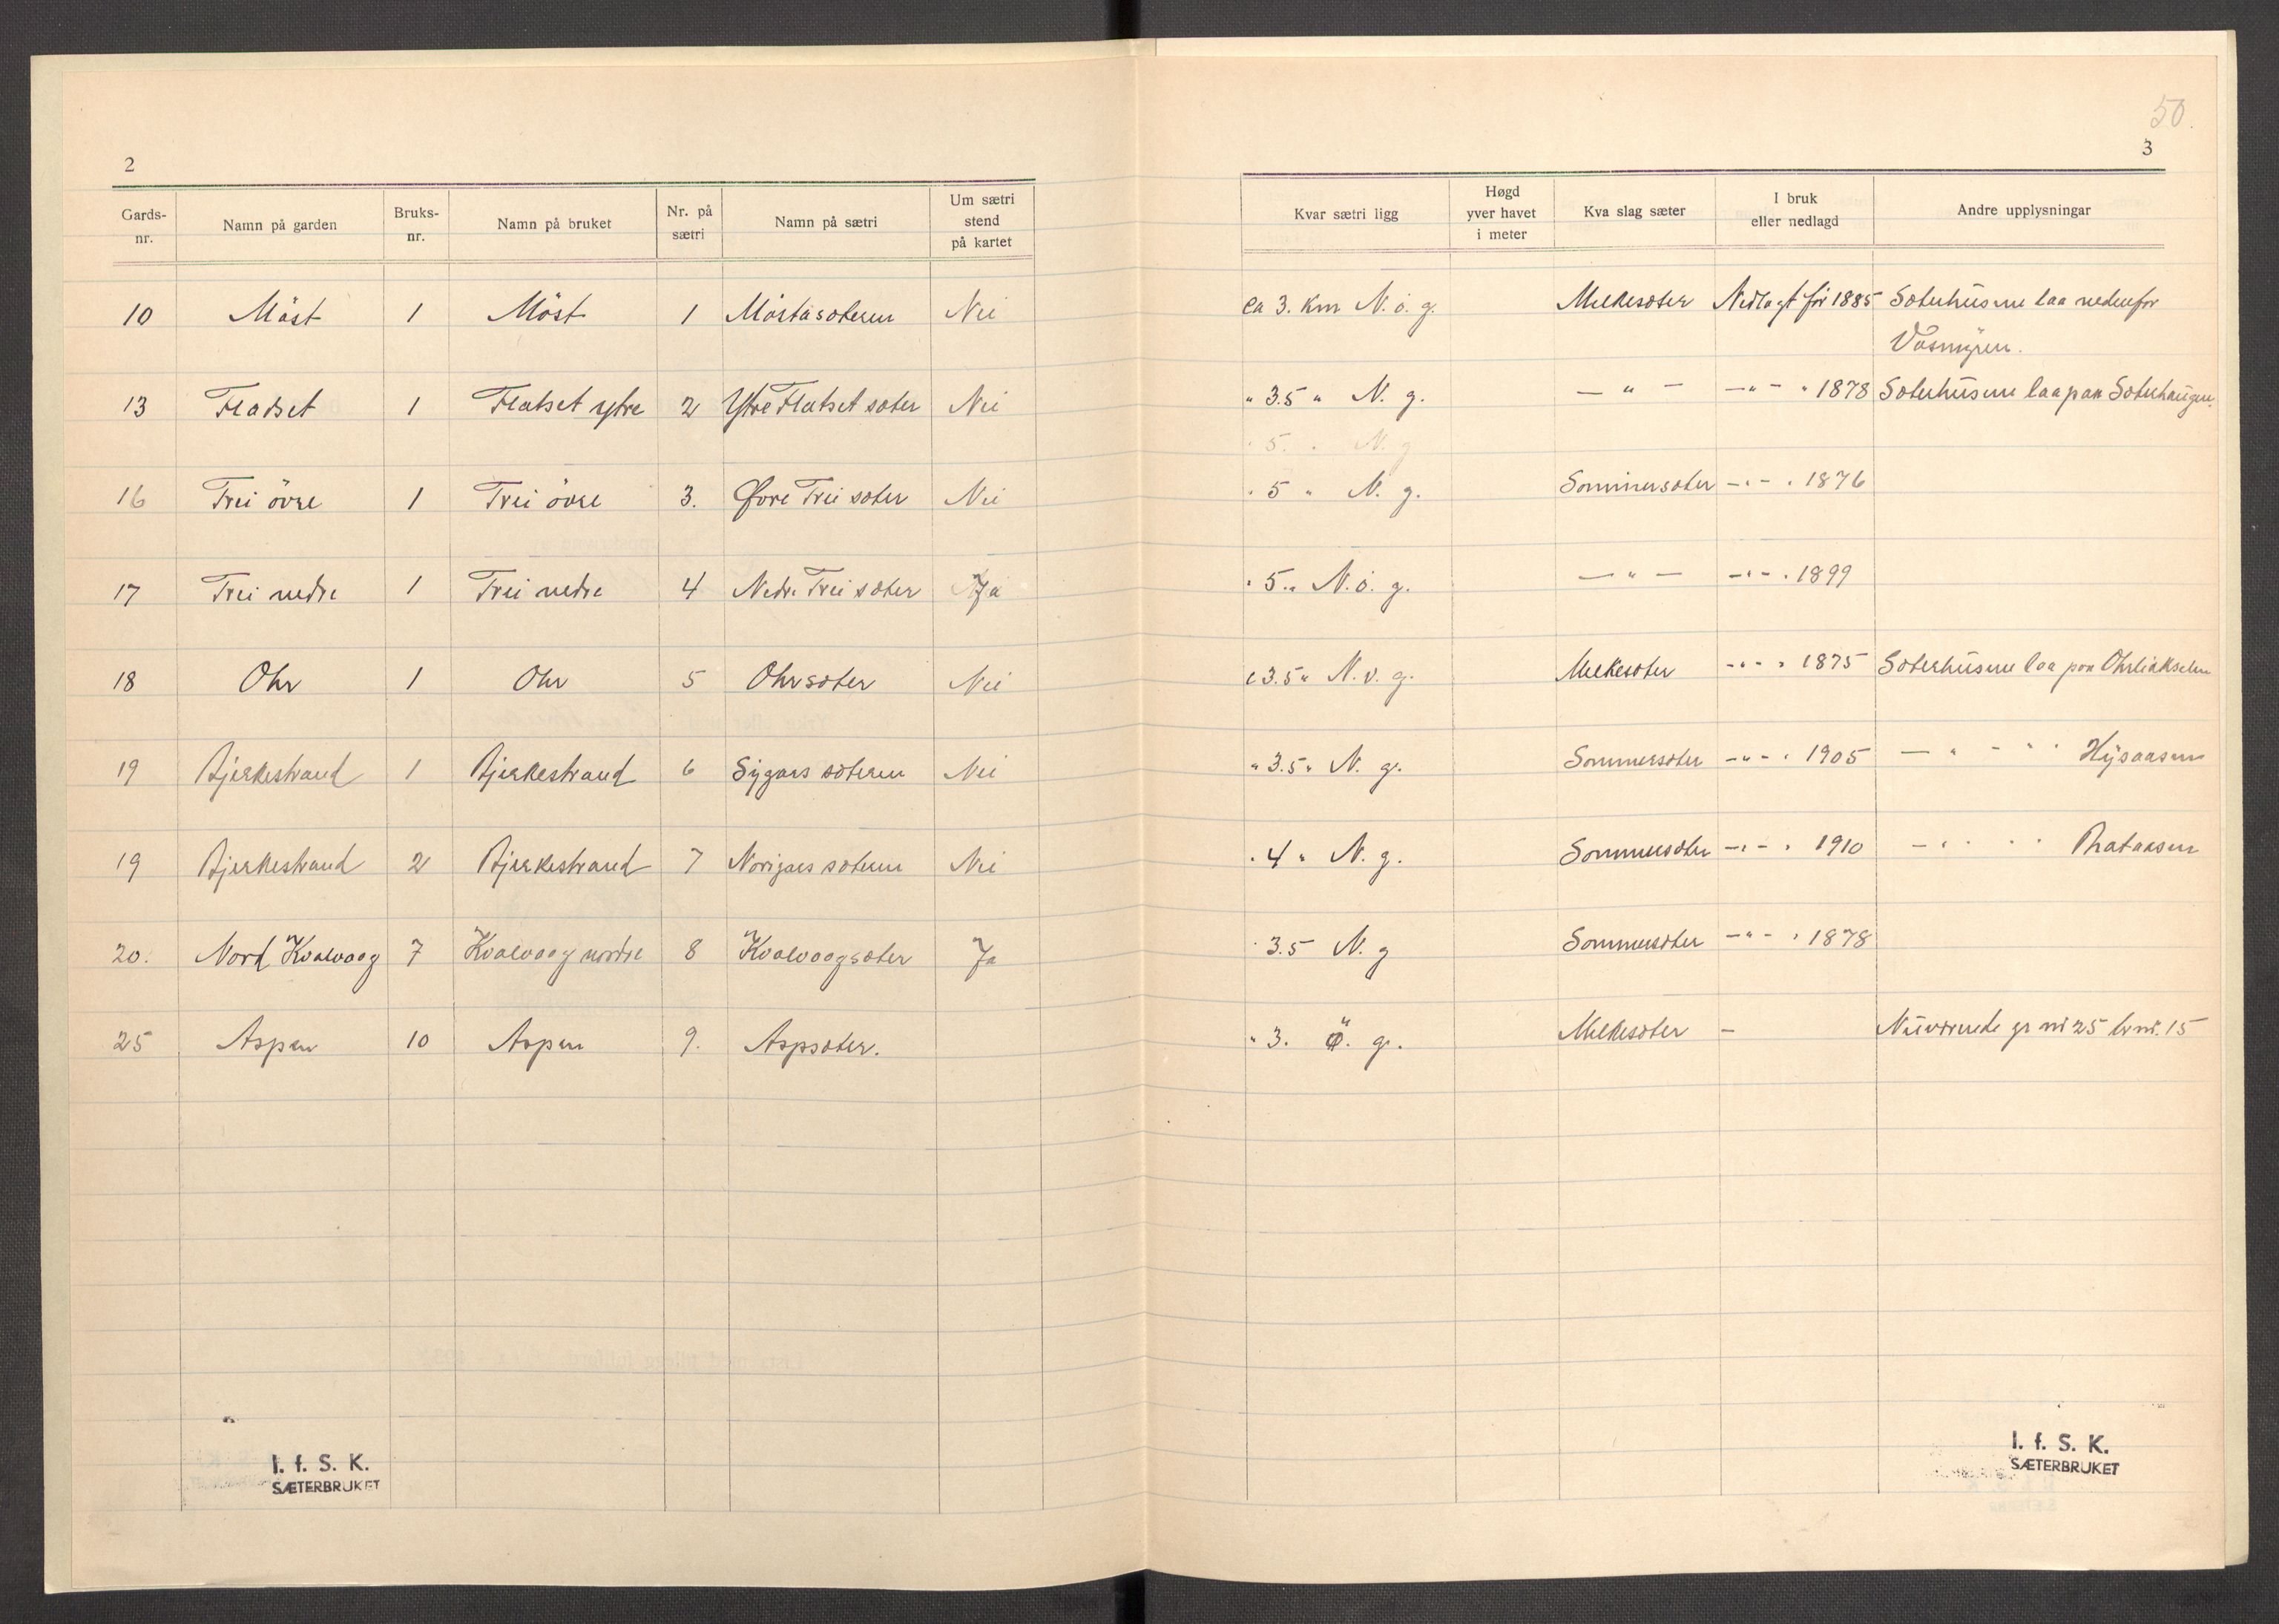 50.
2
3
Gards-nr. Namn på garden Bruks-nr. Namn på bruket Nr. på sætri Namn på sætri Um sætri stend på kartet Kvar sætri ligg Høgd yver havet i meter Kva slag sæter I bruk eller nedlagd Andre upplysningar
10 Möst 1 Möst 1 Möstasæteren Nei ca 3. km N.ö.g. Melkesæter Nedlagt för 1885 Sæterhusene laa nedenfor
Vasmyren.
13 Fladset 1 Flatset ytre 2 Ytre Flatset sæter Nei " 3.5 " N. g. — " — — " — " 1878 Sæterhusene laa paa Sæterhaugen.
" 5. " N. g
16 Trei övre 1 Trei övre 3. Øvre Trei sæter Nei " 5 " N. g. Sommersæter — " — " 1876
17 Trei nedre 1 Trei nedre 4 Nedre Trei sæter Ja " 5 " N.ö. g. — " — — " — " 1899
18 Ohr 1 Ohr 5 Ohrsæter Nei " 3.5 " N.v. g. Melkesæter — " — " 1875 Sæterhusene laa paa Ohrliakselen
19 Bjerkestrand 1 Bjerkestrand 6 Sygars sæteren Nei " 3.5 " N. g. Sommersæter — " — " 1905 — " — " " Hysaasen
19 Bjerkestrand 2 Bjerkestrand 7 Norigars sæteren Nei " 4 " N. g. Sommersæter — " — " 1910 — " " " Brataasen
20. Nord Kvalvaag 7 Kvalvaag nordre 8 Kvalvaagsæter Ja " 3.5 N. g Sommersæter — " — " 1878
25 Aspen 10 Aspen 9. Aspsæter. " 3. Ö. g. Melkesæter — Nuværende gr nr 25 br nr. 15
I. f. S. K.
SÆTERBRUKET
I. f. S. K.
SÆTERBRUKET